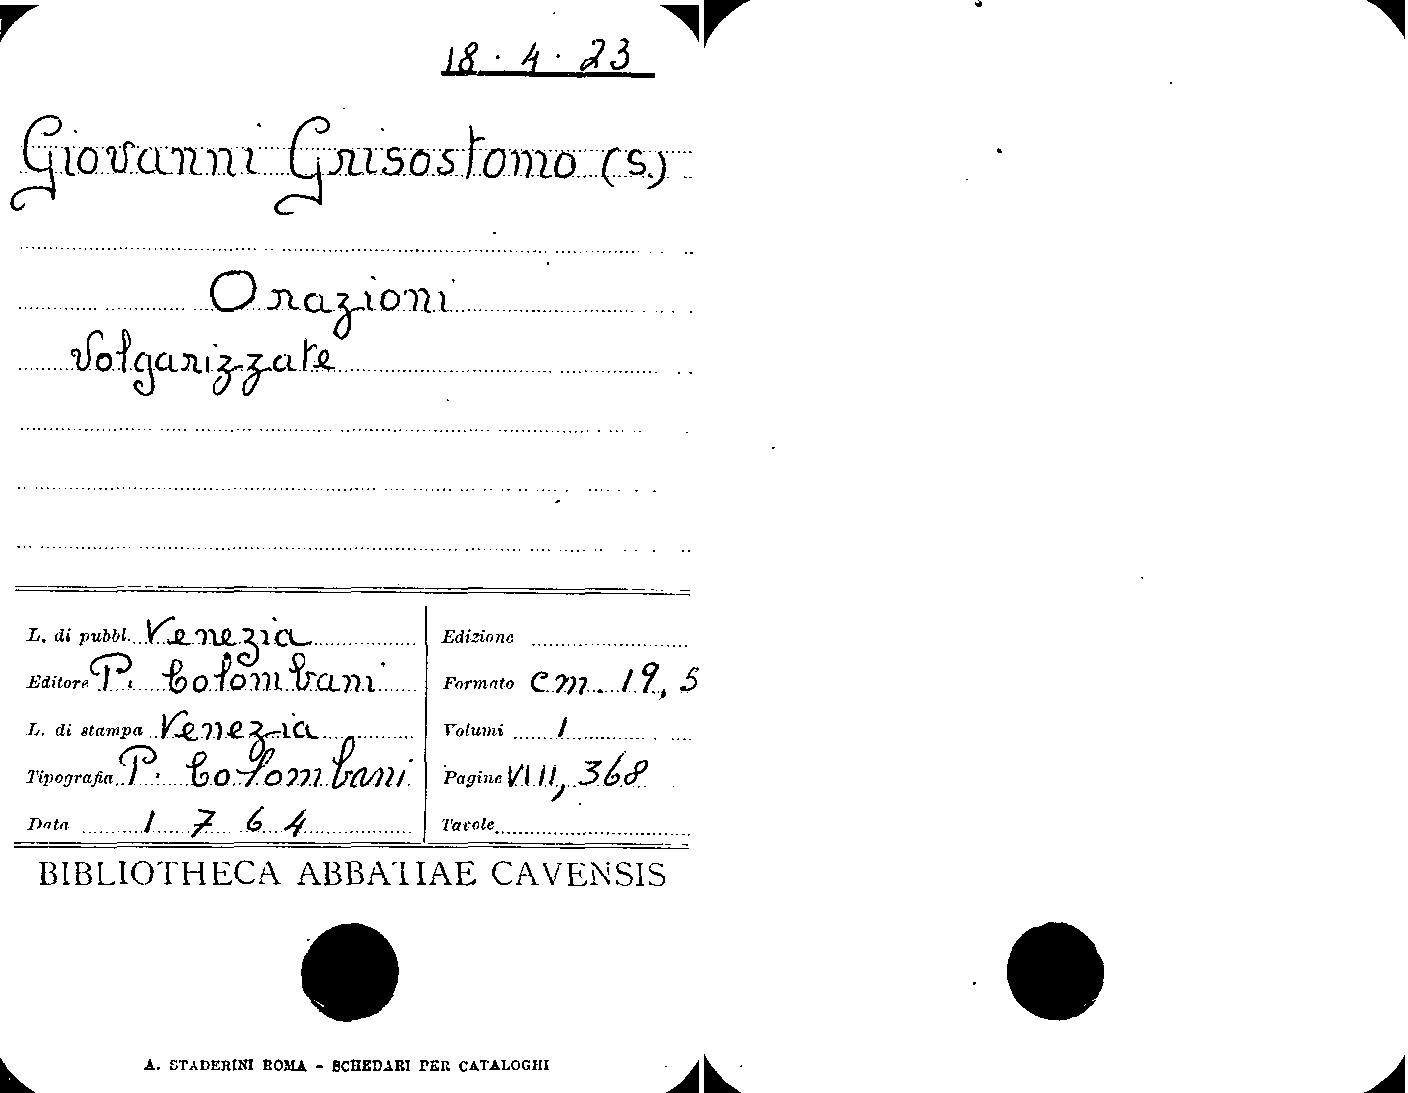 18 · 4 · 23
Giovanni Grisostomo (s.)
Orazioni
volgarizzate
L. di pubbl. Venezia
Editore P. Colombani
L. di stampa Venezia
Tipografia P. Colombani
Data 1764
Edizione
Formato cm. 19,5
Volumi 1
Pagine VIII, 368
Tavole
BIBLIOTHECA ABBATIAE CAVENSIS
A. STADERINI ROMA - SCHEDARI PER CATALOGHI